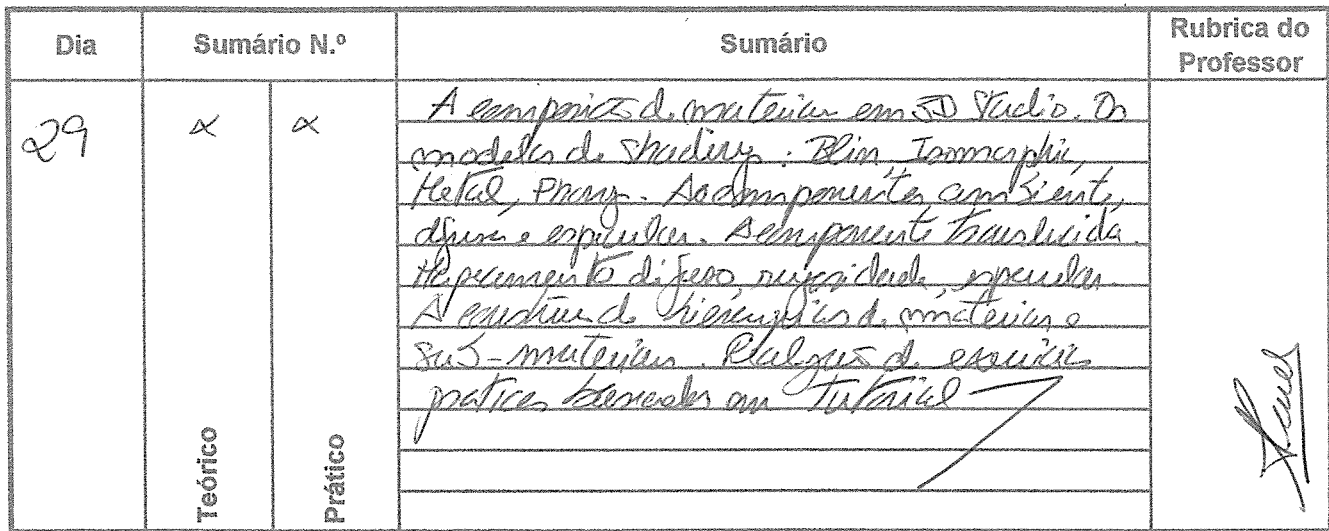 Dia Sumário N.º Sumário Rubrica do Professor
29 x x
A composição de materiais em 3D Studio. Os
modelos de shading: Blin, Isomorphic,
Metal, Phong. As componentes ambiente,
difusa e especular. A componente translucida.
Mapeamento difuso, rugosidade, especular.
A construção de hierarquias de materiais e
sub-materiais. Realização de exercícios
praticos baseados em tutorial
Teórico
Prático